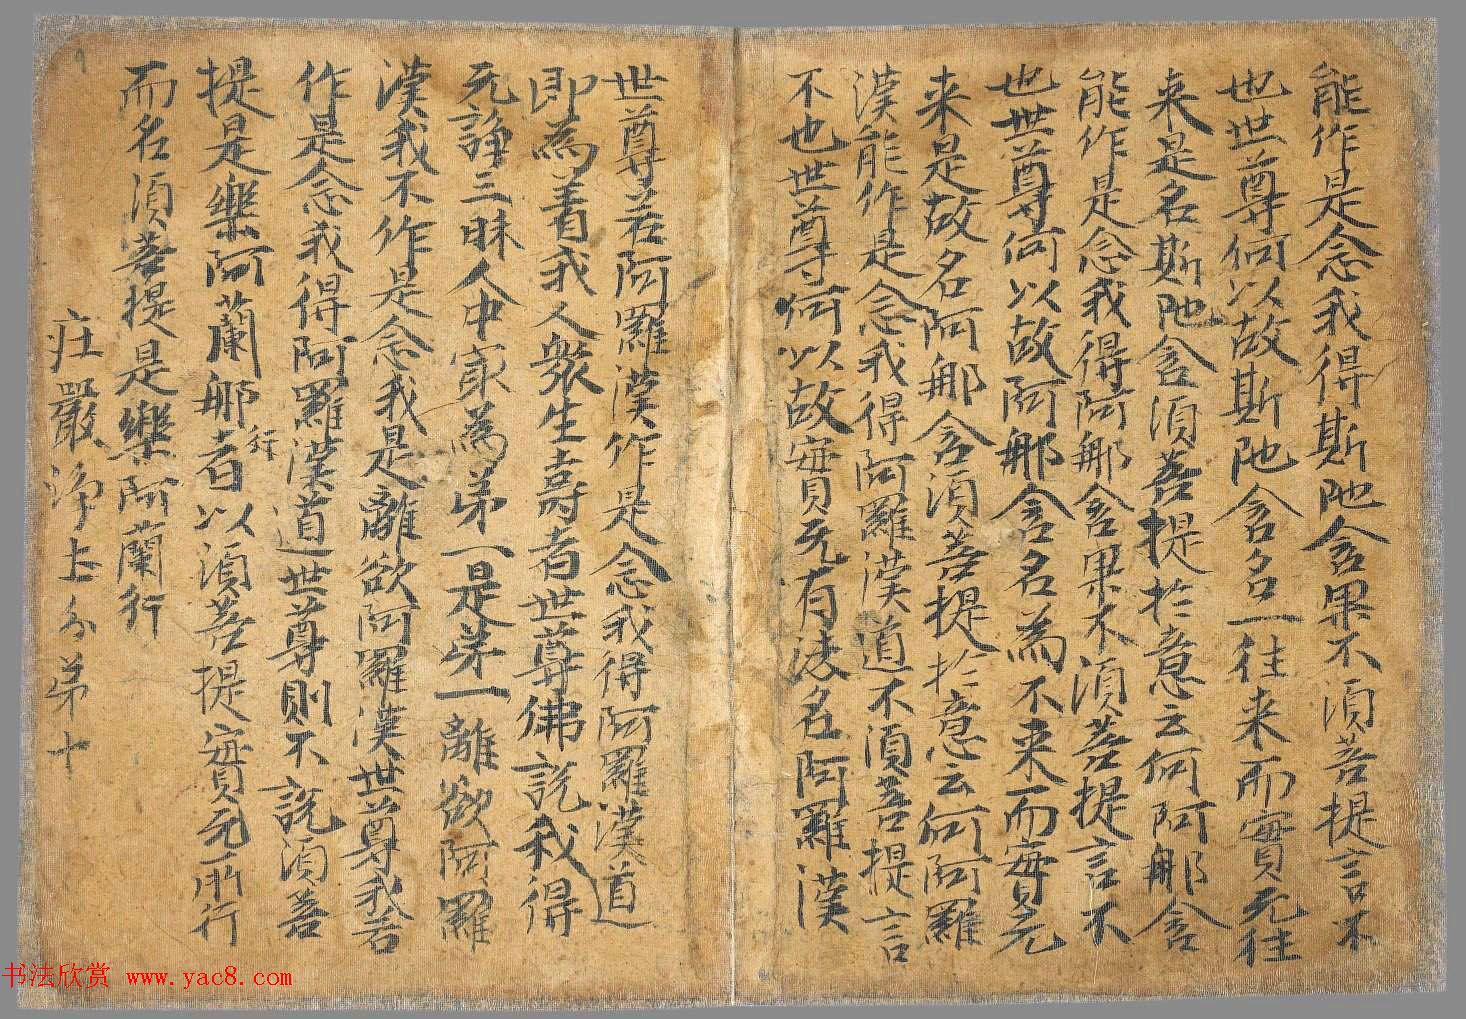 能作是念我得斯陁含果不須菩提言不
也世尊何以故斯陁含名一往来而實无往
来是名斯陁含須菩提扵意云何阿那含
能作是念我得阿那含果不須菩提言不
也世尊何以故阿那含名為不来而實无
来是故名阿那含須菩提扵意云何阿羅
漢能作是念我得阿羅漢道不須菩提言
不也世尊何以故實无有法名阿羅漢
世尊若阿羅漢作是念我得阿羅漢道
即為着我人衆生壽者世尊佛說我得
无諍三昧人中寂為弟一是弟一離欲阿羅
漢我不作是念我是離欲阿羅漢世尊我若
作是念我得阿羅漢道世尊則不說須菩
提是樂阿蘭那行者以須菩提實无所行
而名須菩提是樂阿蘭行
庄嚴浄土分弟十
书法欣赏 www.yac8.com